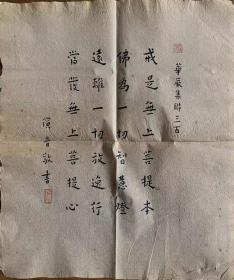 華嚴集聯三百
戒是無上菩提本
佛為一切智慧燈
遠離一切放逸行
當發無上菩提心
演音敬書